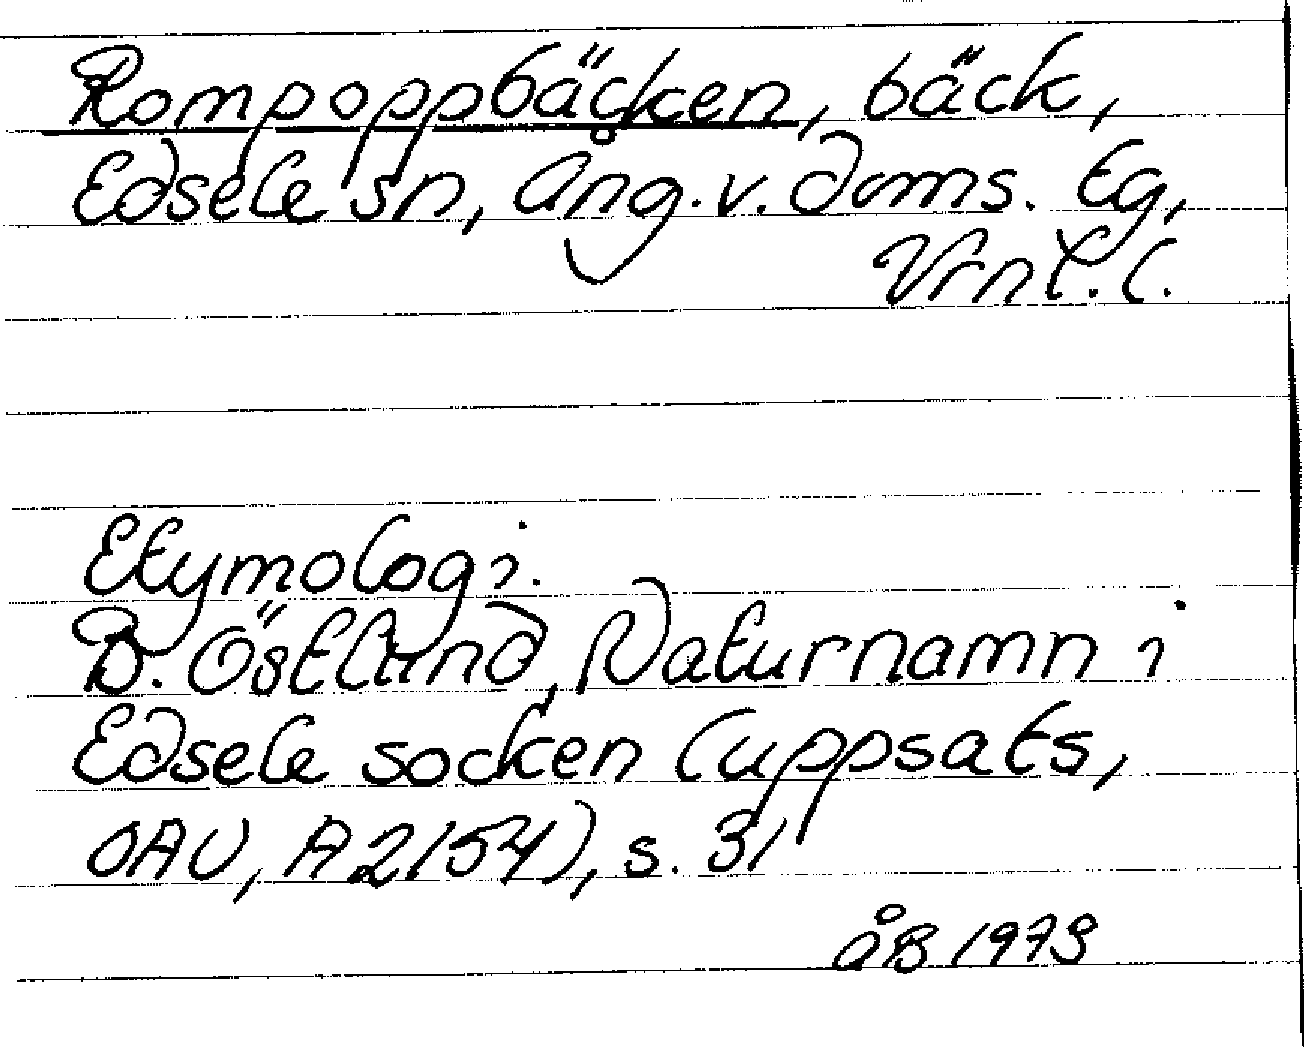 Rompoppbäcken, bäck,
Edsele sn, Ång. v. doms. tg,
Vrnl. l.
Etymologi.
B. Östlund, Naturnamn i
Edsele socken (uppsats,
OAU, A2154), s. 31
åB 1973